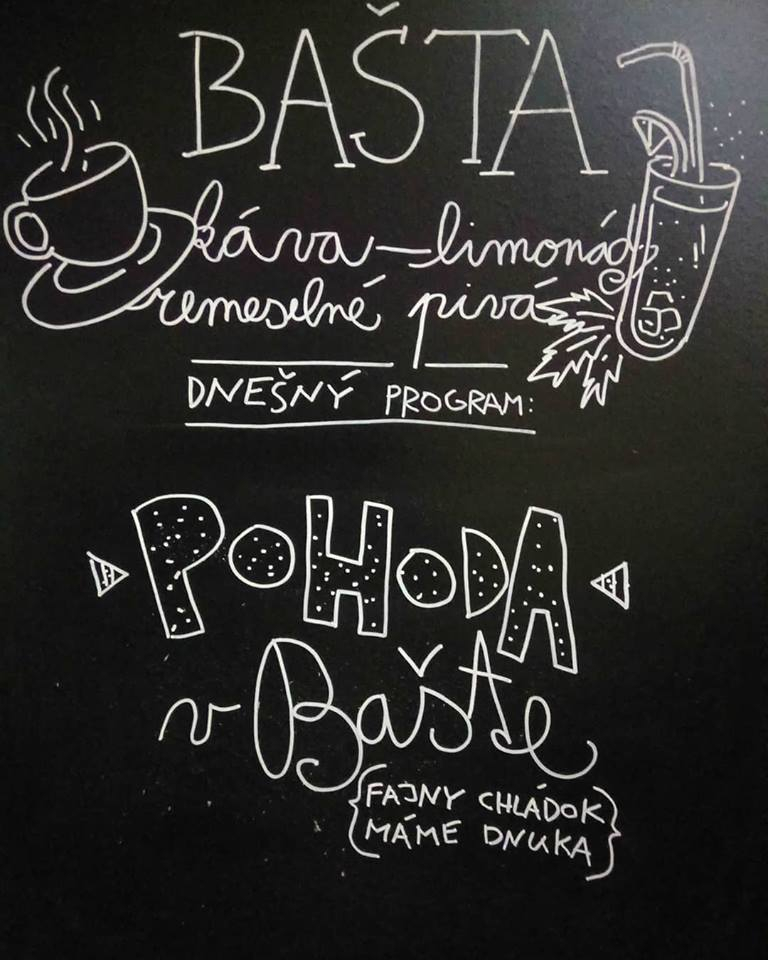 BAŠTA
káva – limonády
remeselné pivá
DNEŠNÝ PROGRAM:
POHODA
v Bašte
{FAJNY CHLÁDOK
MÁME DNUKA}